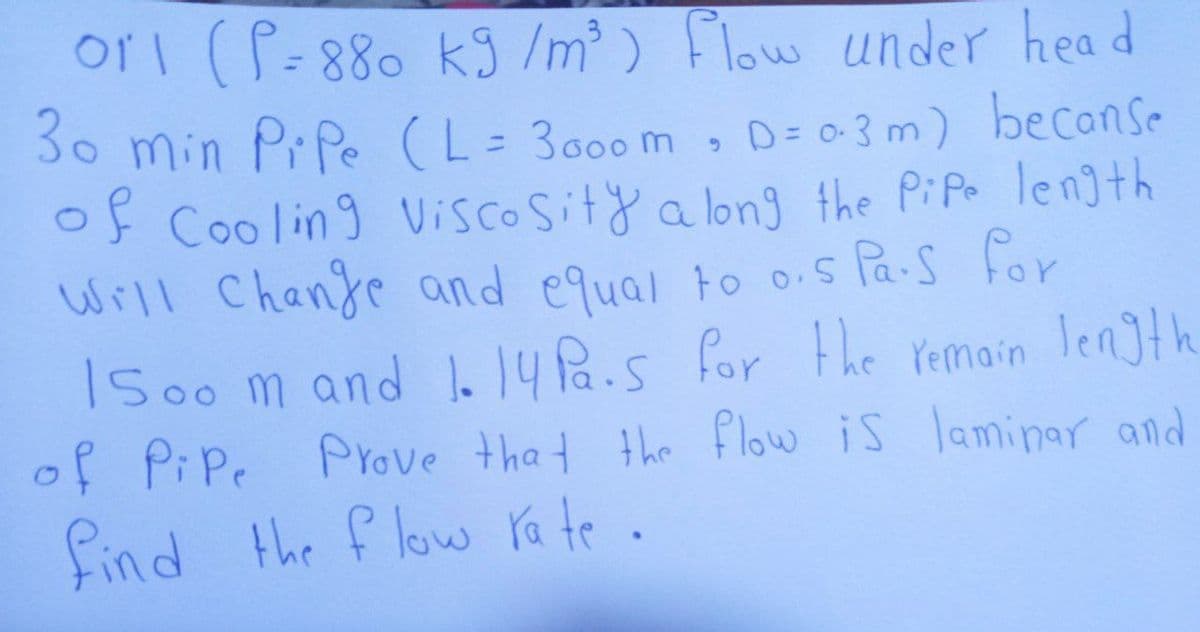 oil (ρ=880 kg/m³) flow under head
30 min Pipe (L = 3000 m , D = 0.3 m) becanse
of Cooling Viscosity along the PiPe length
will Change and equal to 0.5 Pa.s for
1500 m and 1.14 Pa.s for the remain length
of PiPe Prove that the flow is laminar and
find the flow rate .